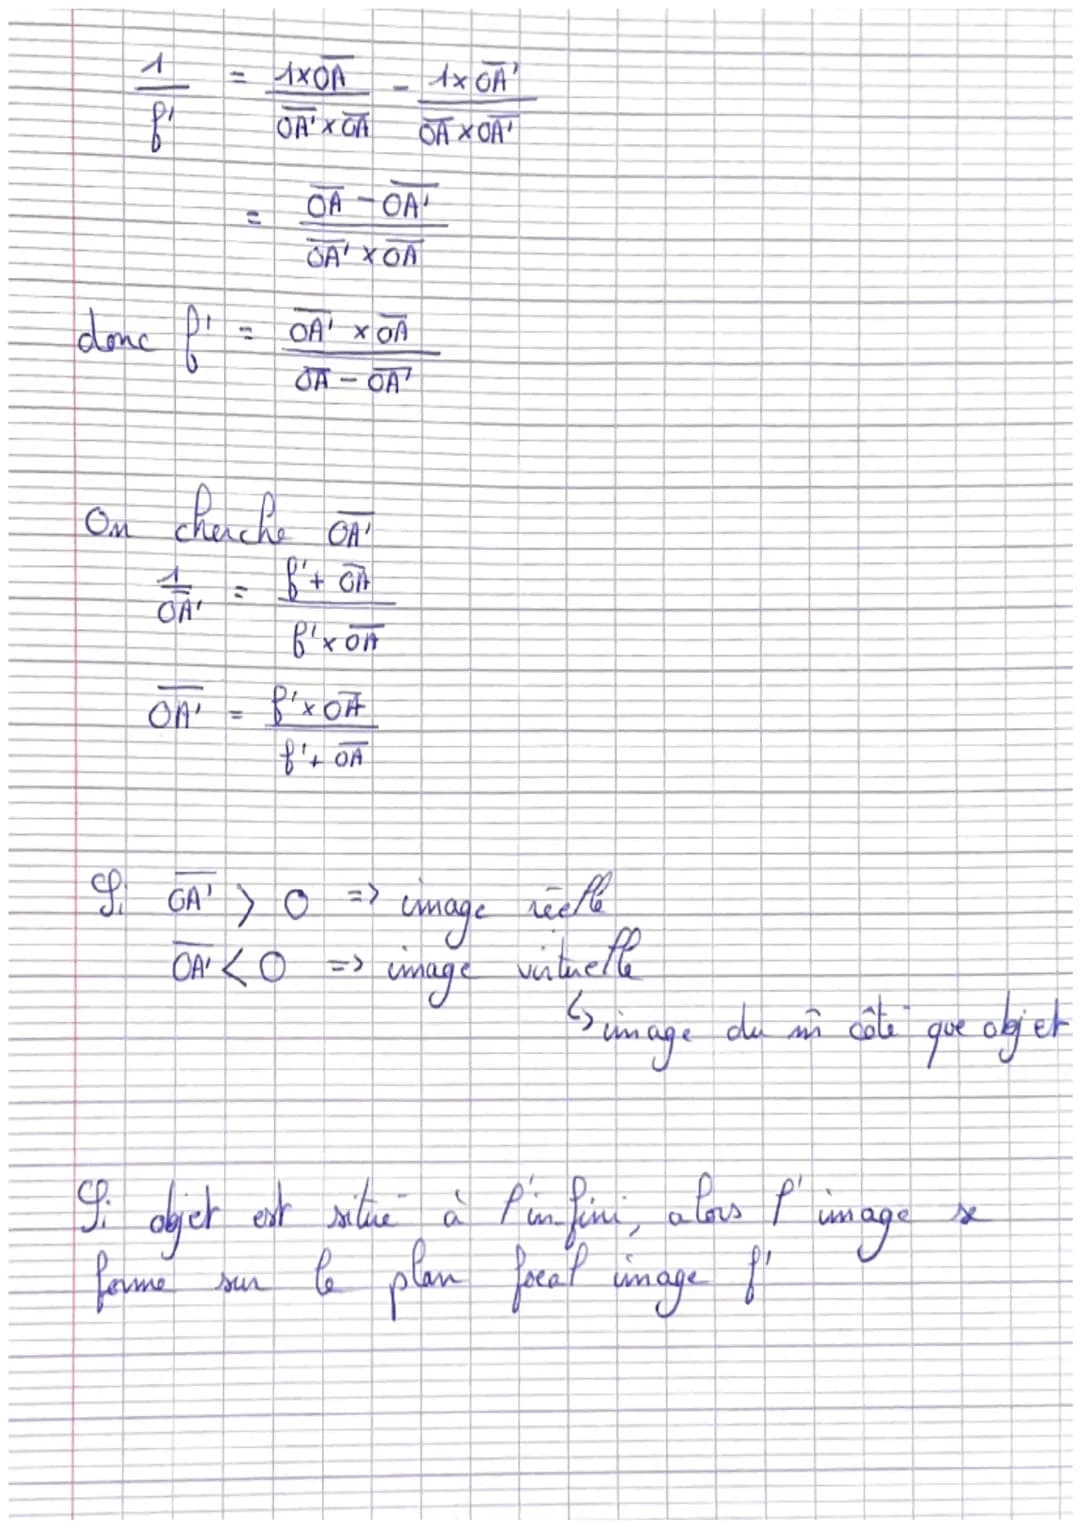 1/f' = (1×O̅A̅)/(O̅A̅'×O̅A̅) - (1×O̅A̅')/(O̅A̅×O̅A̅')
= (O̅A̅ - O̅A̅')/(O̅A̅' × O̅A̅)
donc f' = (O̅A̅' × O̅A̅)/(O̅A̅ - O̅A̅')
On cherche O̅A̅'
1/O̅A̅' = (f' + O̅A̅)/(f' × O̅A̅)
O̅A̅' = (f' × O̅A̅)/(f' + O̅A̅)
Si O̅A̅' > 0 => image réelle
O̅A̅' < 0 => image virtuelle
↳ image du m̂ côté que objet
Si objet est situé à l'infini, alors l'image se
forme sur le plan focal image f'